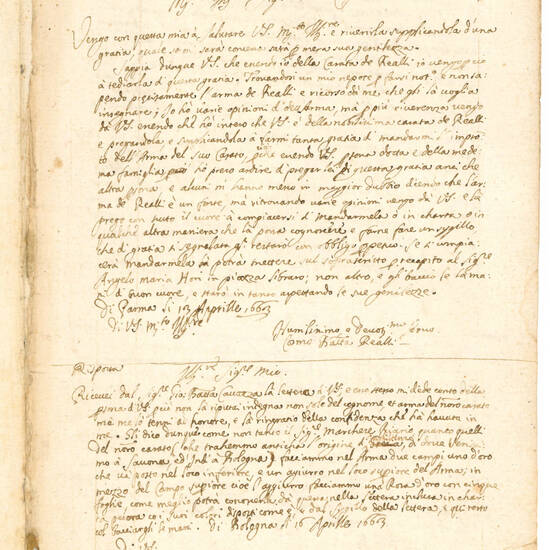 Vengo con questa mia à salutare V.S. M.to Ill.re e riverirla supplicandola d'una
gratia, quale son sarà sarà p mera sua gentilezza.
Sappia dunque V.S. che essendo io della Casata de Realli io vengo
à tediarla di questa gratia. Trovandosi un mio nepote p farsi not.o e non sa
pendo l'arma de Realli e ricorso da me, che gli la voglia
insegnare; Io hò varie opinioni di dettArma, mà p più riverenza vengo
dà V.S. essendo che hò inteso che V.S. è della nobilissima casata de Realli
e pregandola, e supplicandola à farmi tanta gratia di mandarmi l'impro
to dell'Arma del suo Casato, essendo V.S. psona dotta e della mede
ma famiglia però hò preso ardire di pregar lei di questa gratia anzi che
altra psona e alcuni mi hanno messo in maggior dubio dicendo che l'ar
ma de' Realli è un fonte, mà ritrovando varie opinioni vengo dà V.S. e la
prego con tutto il cuore à compiacersi di mandarmela ò in charta ò in
qualche altra maniera che la possa cognoscere e farne fare un sygillo,
che di gratia si segnalata gli restarò con obbligo ppetuo. Se si compia
cerà mandarmela la potrà mettere sul soprascritto p recapito al sig.re
Angelo Maria Hori in piazza libraro; non altro, e gli baccio le ma
ni di buon cuore, e starò in tanto aspettando le sue gentilezze.
Di Parma si 13 Aprille 1663
di V.S. M.to Ill.re
Humilissimo e Devot.mo Servo
Como Batta Realli
Risposta Ill.re Sig.re Mio.
Ricevei dal Sig.re Gio Batta la lettera di V.S. e cio stesso mi dede conto della
psona di V.S. p non la riputai indegna non solo del cognome et arma del nostro casato
mà me lo tenni ad honore, e la ringratio della confidenza che hà havuta in
me. Gli dico dunque come non tanto il Sig.re Marchese quanto quelli
del nostro casato, che trahemmo anticha l'origine di dove veni
mo à Savona ed Indi à Bologna facciamo nel Arma due campi uno d'oro
che va posto nel loco inferiore, e un azzurro nel loco supiore del Arma; in
mezzo del Campo supiore cioè l'azzurro facciamo una Rosa d'oro con cinque
foglie, come meglio potrà conoscerla da questa nella lettera inclusa in char
ta co i suoi colori disposti come è dal sygillo della lettera, e qui resto
col bacciargli le mani. Di Bologna si 16 Aprille 1663
Di V.S.